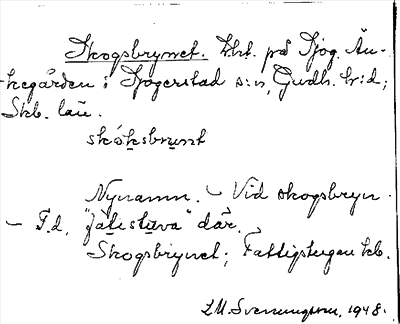 Skogsbrynet. Lht. på Fjog. Än-
kegården i Fjogerstad s:n, Gudh. h:d;
Skb. län.
skóksbrynt
Nynamn. – Vid skogsbryn.
– F.d. "fàtistuva" där.
Skogsbrynet; Fattigstugan kb.
1948.